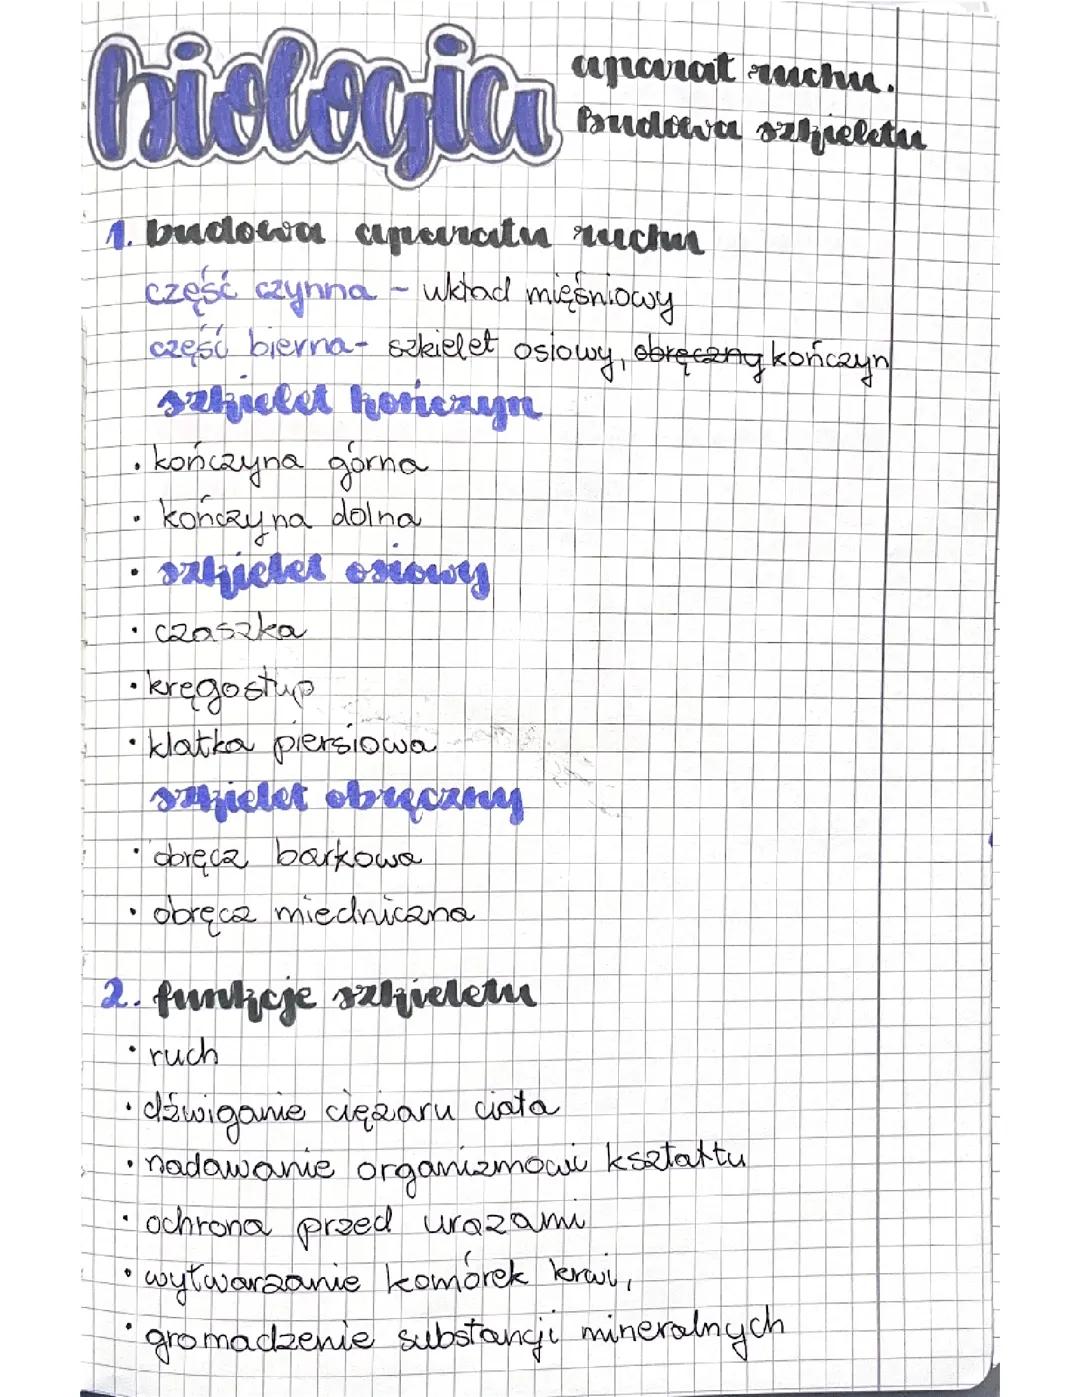 biologia
aparat ruchu.
Budowa szkieletu
1. budowa aparatu ruchu
część czynna - układ mięśniowy
część bierna - szkielet osiowy, obręczny kończyn
szkielet kończyn
• kończyna górna
• kończyna dolna
• szkielet osiowy
• czaszka
• kręgosłup
• klatka piersiowa
szkielet obręczny
• obręcz barkowa
• obręcz miedniczna
2. funkcje szkieletu
• ruch
• dźwiganie ciężaru ciała
• nadawanie organizmowi kształtu
• ochrona przed urazami
• wytwarzanie komórek krwi,
• gromadzenie substancji mineralnych